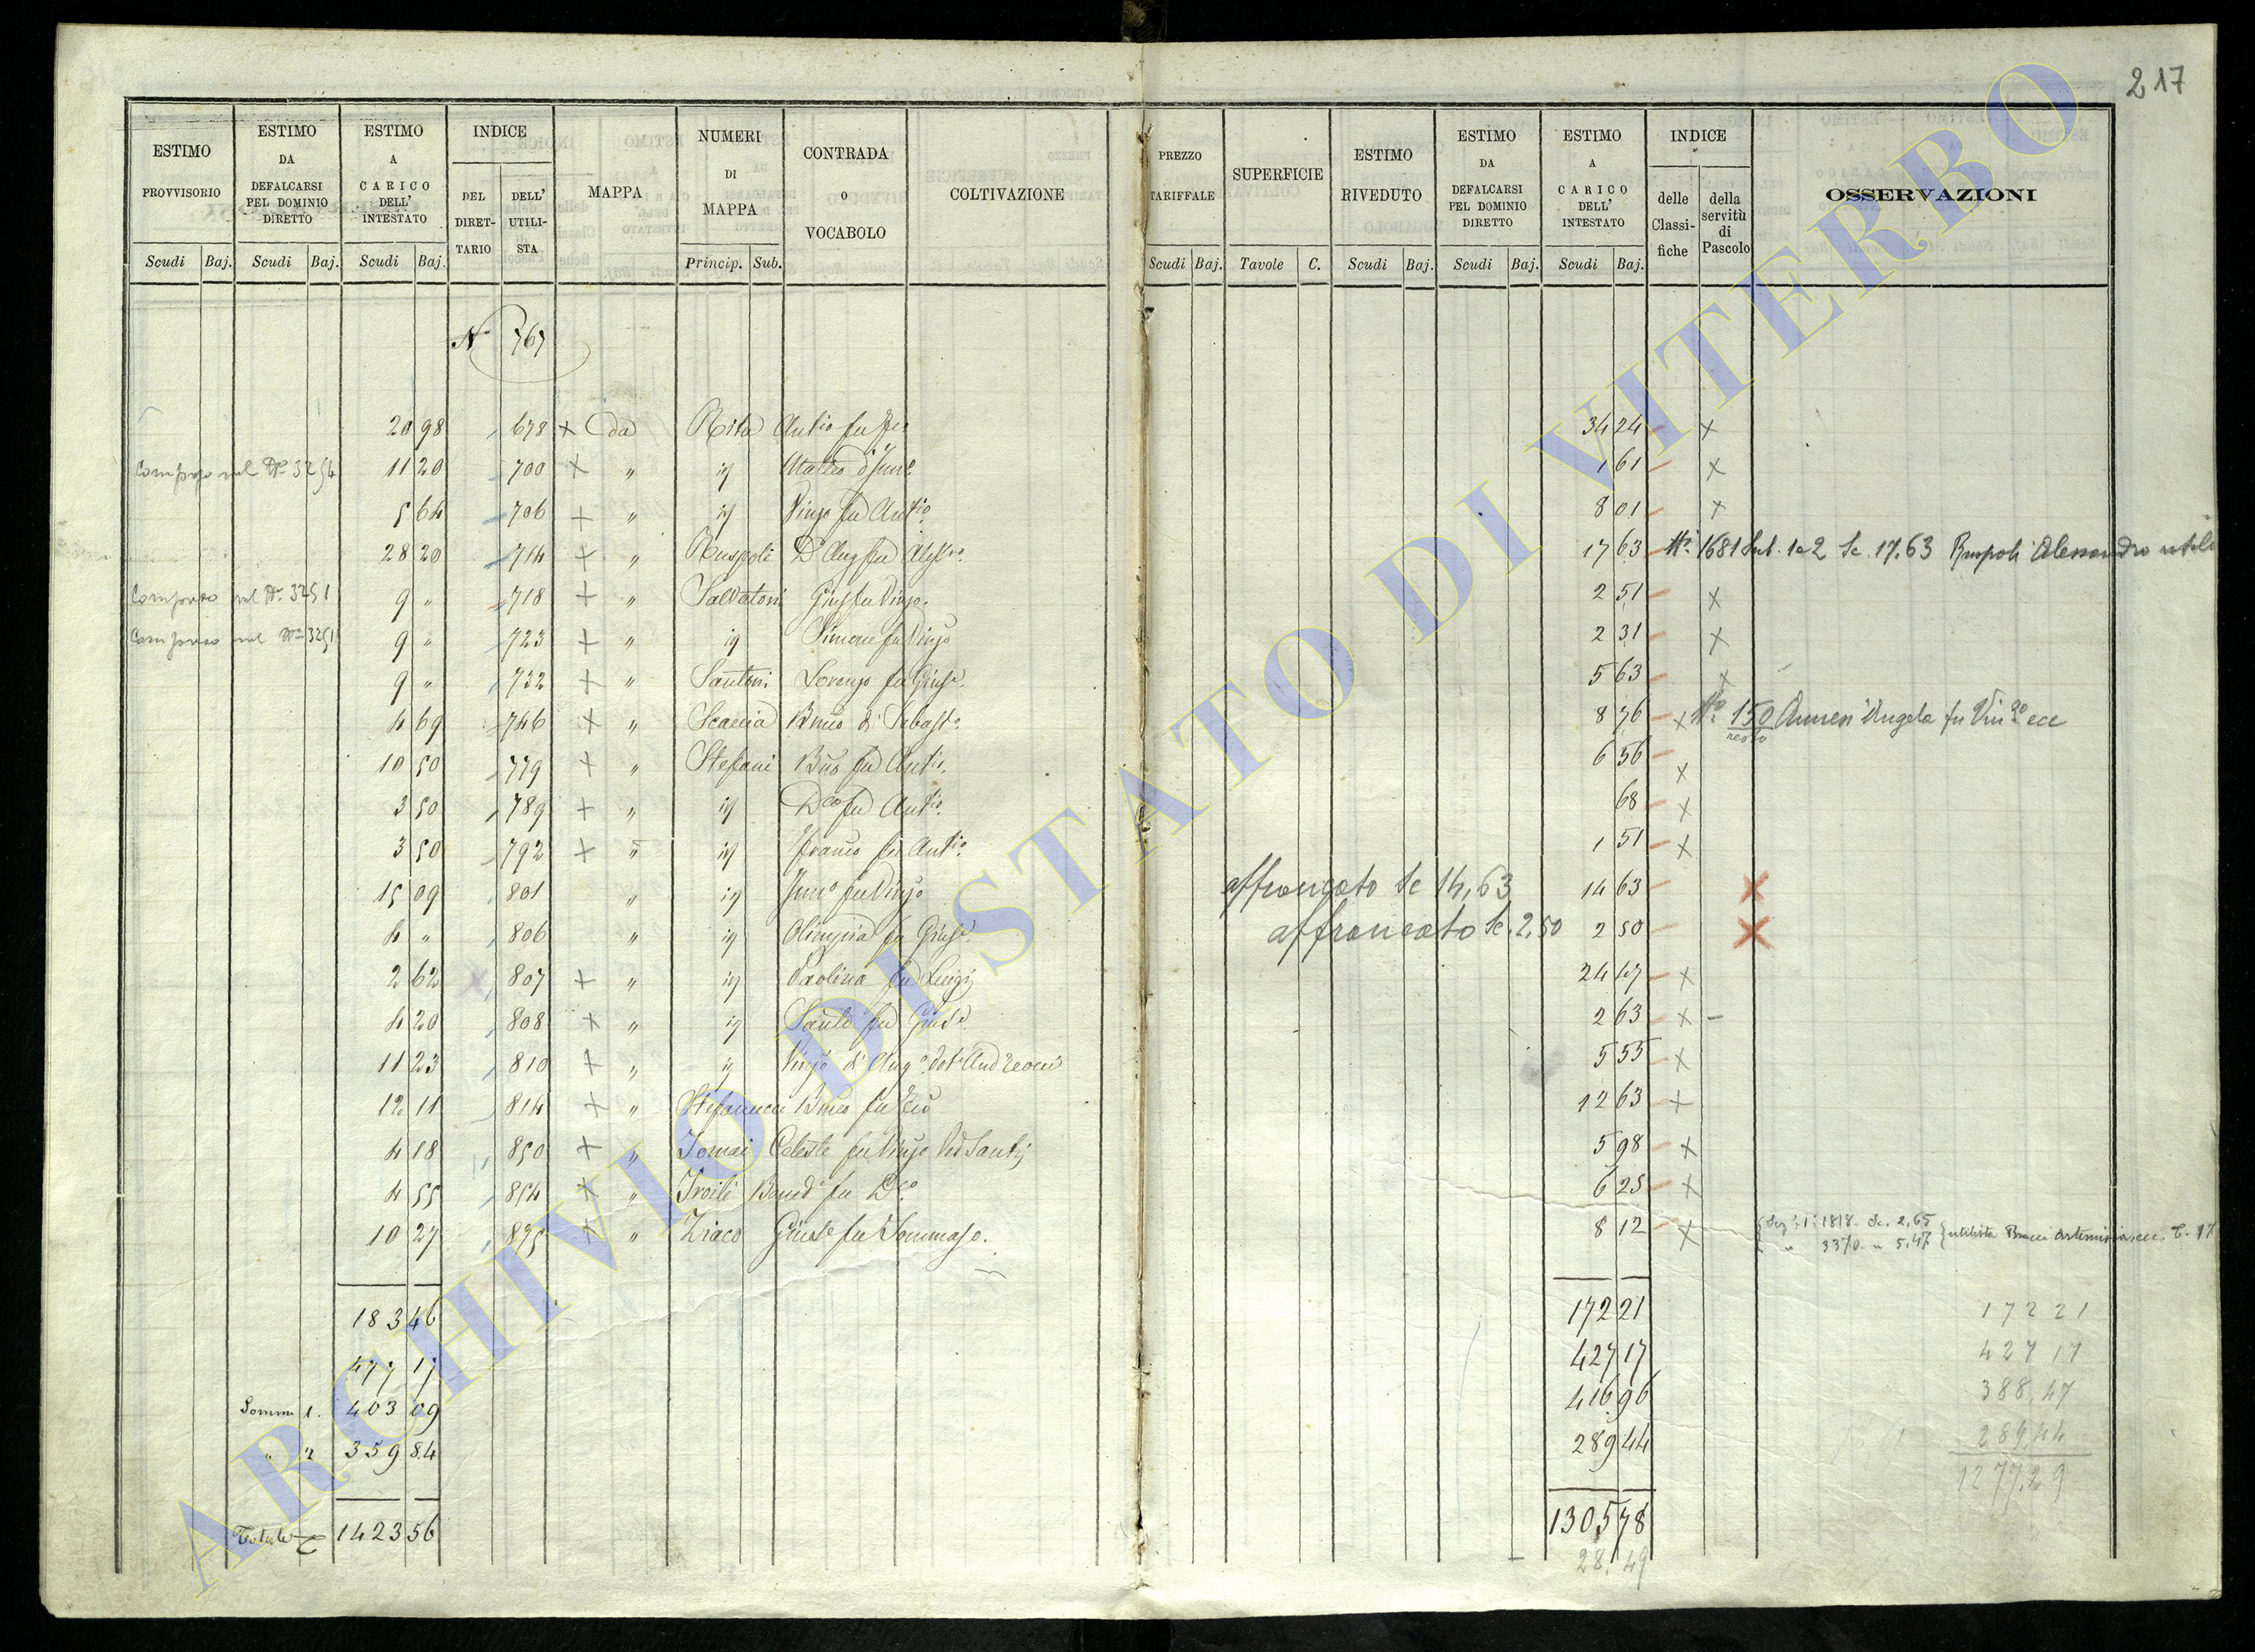 217
ESTIMO PROVVISORIO | ESTIMO DA DEFALCARSI PEL DOMINIO DIRETTO | ESTIMO A CARICO DELL' INTESTATO | INDICE DEL DIRETTARIO | DELL' UTILISTA | MAPPA | NUMERI DI MAPPA | CONTRADA O VOCABOLO | COLTIVAZIONE | PREZZO TARIFFALE | SUPERFICIE | ESTIMO RIVEDUTO | ESTIMO DA DEFALCARSI PEL DOMINIO DIRETTO | ESTIMO A CARICO DELL' INTESTATO | INDICE delle Classifiche | della servitù di Pascolo | OSSERVAZIONI
Scudi Baj. Scudi Baj. Scudi Baj. Princip. Sub. Scudi Baj. Tavole C. Scudi Baj. Scudi Baj. Scudi Baj.
N 767
20 98 678 x da Rita Antio fu 34 24 x
Compreso nel No 3254 11 20 700 x " id Matteo d 1 61 x
5 64 706 + " id Vinzo fu Antio 8 01 x
28 20 714 + " Ruspoli D Aug fu Aless 17 63 No 1681 Sub. 1 e 2 Sc. 17.63 Ruspoli Alessandro utile
Compreso nel No 3251 9 " 718 + " Salvatori Gius fu Vinzo. 2 51 x
Compreso nel No 3251 9 " 723 + " id Simone fu Vinzo 2 31 x
9 " 732 + " Santoni Lorenzo fu Giuse. 5 63 x
4 69 746 x " Scaccia d' Sebasto. 8 76 x No 150 Angela fu Vin ecc
resto
10 50 779 + " Stefani fu Anto. 6 56 x
3 50 789 + " id Dco fu Antio. 68 x
3 50 792 + " id Franco fu Antio. 1 51 x
15 09 801 " id fu Vinzo affrancato Sc 14,63 14 63 x
4 " 806 " id Olimpia fu Giuse affrancato Sc. 2,50 2 50 x
2 62 807 + " id Paolina fu Luigi 24 47 x
4 20 808 x " id Sante fu Giuse 2 63 x -
11 23 810 + " id Vinzo d' Ango. 5 55 x
12 11 814 + " Stefanucci fu 12 63 +
4 18 850 + " Tomei Celeste fu Vinzo Ved Santi 5 98 x
4 55 854 x " Troili fu Dco 6 25 x
10 27 895 + " Ziaco Giuse fu Tommaso. 8 12 x Sez. 1a 1818 Sc. 2,65
" 3370 " 5,47 utilista Artemisia, ecc.
183 46 172 21 172 21
477 17 427 17 427 17
Somma 1. 403 09 416 96 388.47
" 2 359 84 289 44 289.44
1277.29
Totale 1423 56 1305 78
28.49
ARCHIVIO DI STATO DI VITERBO